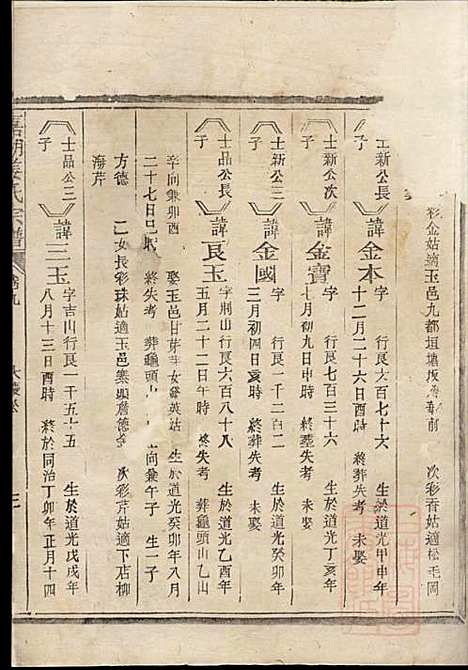 彩金姑適玉邑九都垣壩 前 次彩香姑適松毛岡
士新公長子 諱金本 字 行良六百七十六 生於道光甲申年
十二月二十六日酉時 終葬失考 未娶
士新公次子 諱金寶 字 行良七百三十六 生於道光丁亥年
七月初九日申時 終塟失考 未娶
士新公三子 諱金國 字 行良一千二百二 生於道光癸卯年
三月初四日亥時 終葬失考 未娶
士品公長子 諱良玉 字荆山行良六百八十八 生於道光乙酉年
五月二十二日午時 終失考 葬龜頭山乙山
辛向兼卯酉 娶玉邑甘芽 女發英姑 生於道光癸卯年八月
二十七日巳 終失考 葬龜頭 向兼午子 生一子
方德 二女長彩珠姑適玉邑寨頭詹德 次彩芹姑適下店柳
海芹
士品公三子 諱三玉 字吉山行良一千五十五 生於道光戊戌年
八月十三日酉時 終於同治丁卯年正月十四
姜氏宗譜 卷九